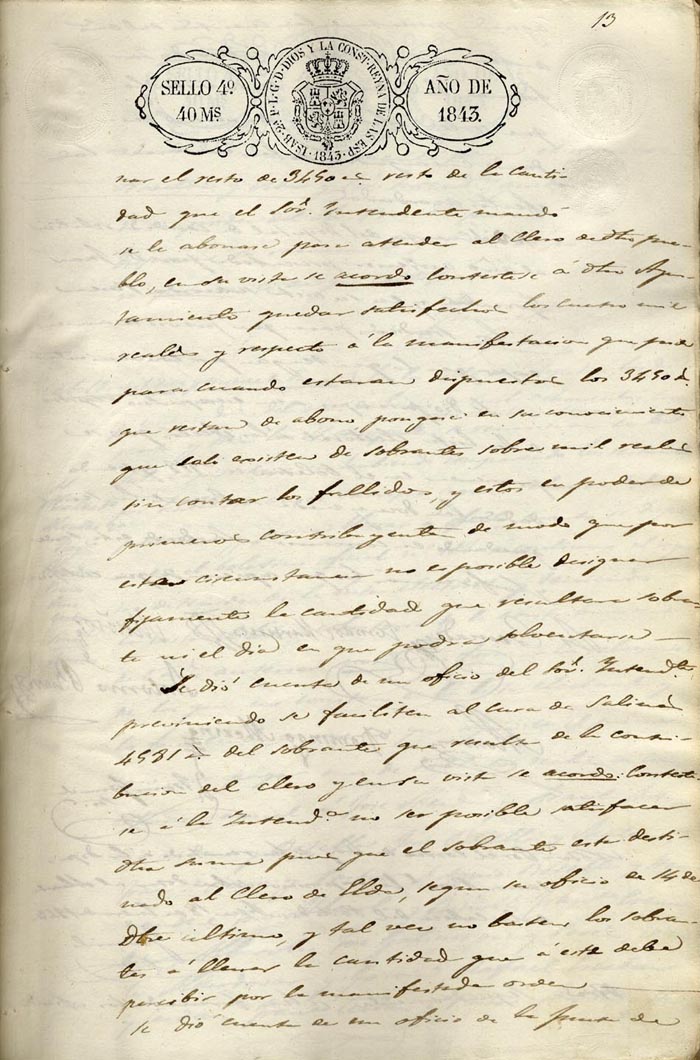 13
SELLO 4º
40 Ms
ISAB. 2ª P. L. G. D. DIOS Y LA CONST. REYNA DE LAS ESP.
1843.
AÑO DE
1843.
nar el resto de 3450 r resto de la canti-
dad que el Sor. Yntendente mandó
se le abonase para atender al Clero de dho pue-
blo, en su vista se acordo Conteste se á dho Ayun-
tamiento quedar satisfechos los cuatro mil
reales y respecto á la manifestacion que pide
para cuando estaran dispuestos los 3450 r.
que restan de abono pongase en su conocimiento
que solo existen de sobrantes sobre mil reales
sin contar los fallidos, y estos en poder de
primeros contribuyentes de modo que por
estas circunstancias no es posible designar
fijamente la cantidad que resultara sobran-
te ni el dia en que podra solventarse
Se dió cuenta de un oficio del Sor. Yntend.te
previniendo se faciliten al Cura de Salinas
4531 r. del sobrante que resulte de la contri-
bucion del clero y en su vista se acordo: Conteste
se á la Yntend.a no ser posible satisfacer
dha suma pues que el sobrante esta desti-
nado al Clero de Elda, segun su oficio de 14 de
Dbre ultimo, y tal vez no basten los sobran-
tes á llenar la cantidad que á este debe
percibir por la manifestada orden
Se dió cuenta de un oficio de la Junta de